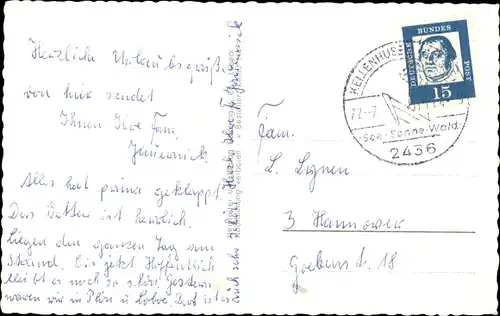 Herzliche Urlaubsgrüße
von hier sendet
Ihnen Ihre Fam.
Alles hat prima geklappt.
Das Wetter ist herrlich.
liegen den ganzen Tag am
Strand. Bis jetzt Hoffentlich
bleibt es noch so schön. Gestern
waren wir in Plön u. Dort ist es
auch sehr schön. Herzl.
DEUTSCHE BUNDES POST
15
KELLENHUS
See·Sonne·Wald
2436
Fam.
L.
3 Hannover
18